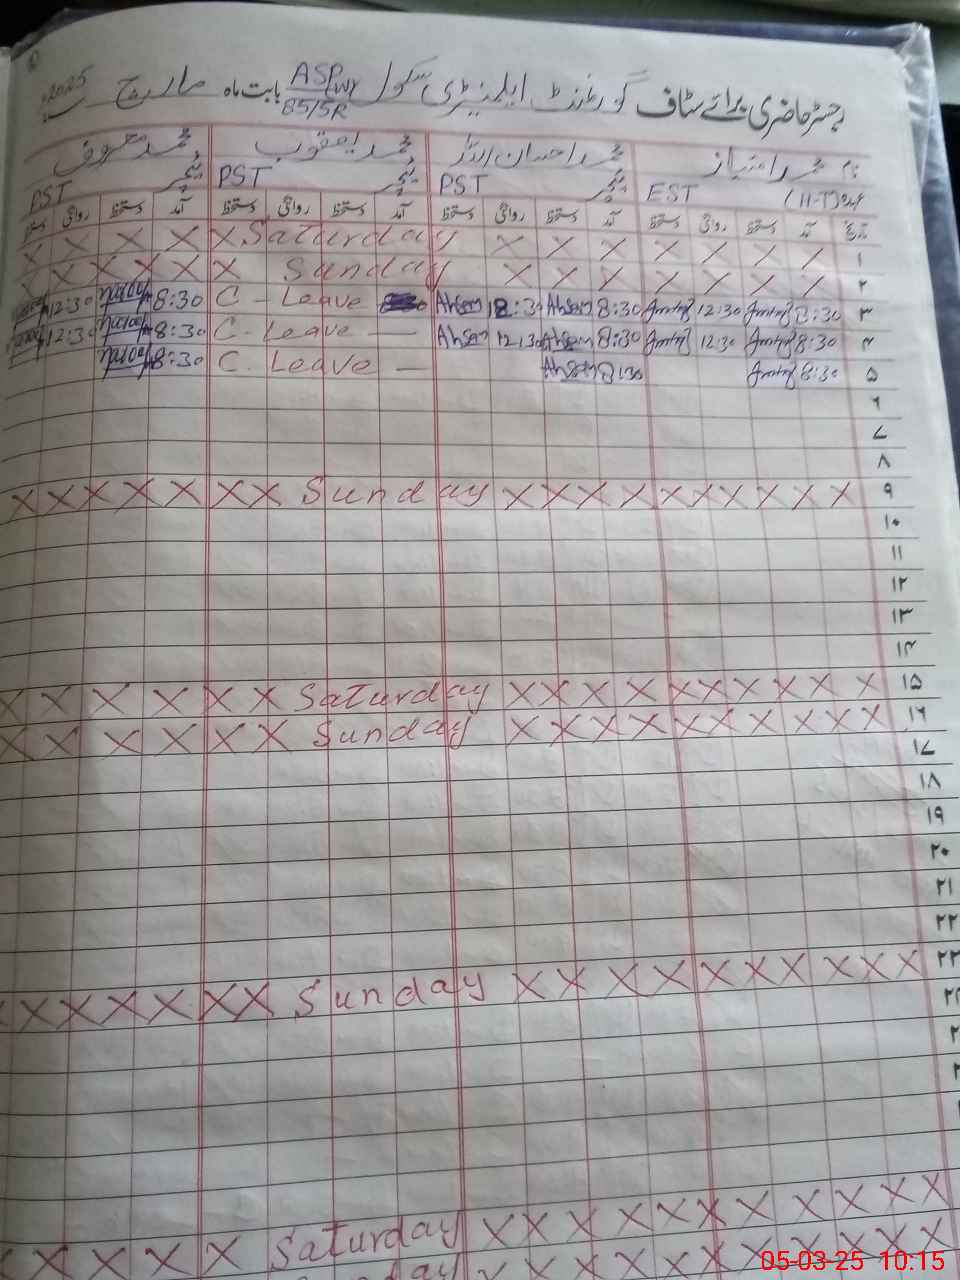 رجسٹر حاضری برائے سٹاف گورنمنٹ ایلیمنٹری سکول ASP(W) 85/5R بابت ماہ مارچ 2025ء
نام محمد امتیاز محمد احسان اللہ محمد یعقوب محمد معروف
عہدہ (H-T) EST ٹیچر PST ٹیچر PST ٹیچر PST
تاریخ آمد دستخط روانگی دستخط آمد دستخط روانگی دستخط آمد دستخط روانگی دستخط آمد دستخط روانگی دستخط
۱ X X X X X X X Saturday X X X X X
۲ X X X X X X X Sunday X X X X X
۳ 8:30 Imtiaz 12:30 Imtiaz 8:30 Ahsan 12:30 Ahsan C-Leave 8:30 12:30
۴ 8:30 Imtiaz 12:30 Imtiaz 8:30 Ahsan 12:30 Ahsan C-Leave — 8:30 12:30
۵ 8:30 Imtiaz 8:30 Ahsan C. Leave — 8:30
۶
۷
۸
۹ X X X X X X X X X X Sunday X X X X X X X
۱۰
۱۱
۱۲
۱۳
۱۴
۱۵ X X X X X X X X X X Saturday X X X X X X
۱۶ X X X X X X X X X X Sunday X X X X X X
۱۷
۱۸
۱۹
۲۰
۲۱
۲۲
۲۳ X X X X X X X X X X Sunday X X X X X X X
X X X X X X X X X X Saturday X X X X X
05-03-25 10:15